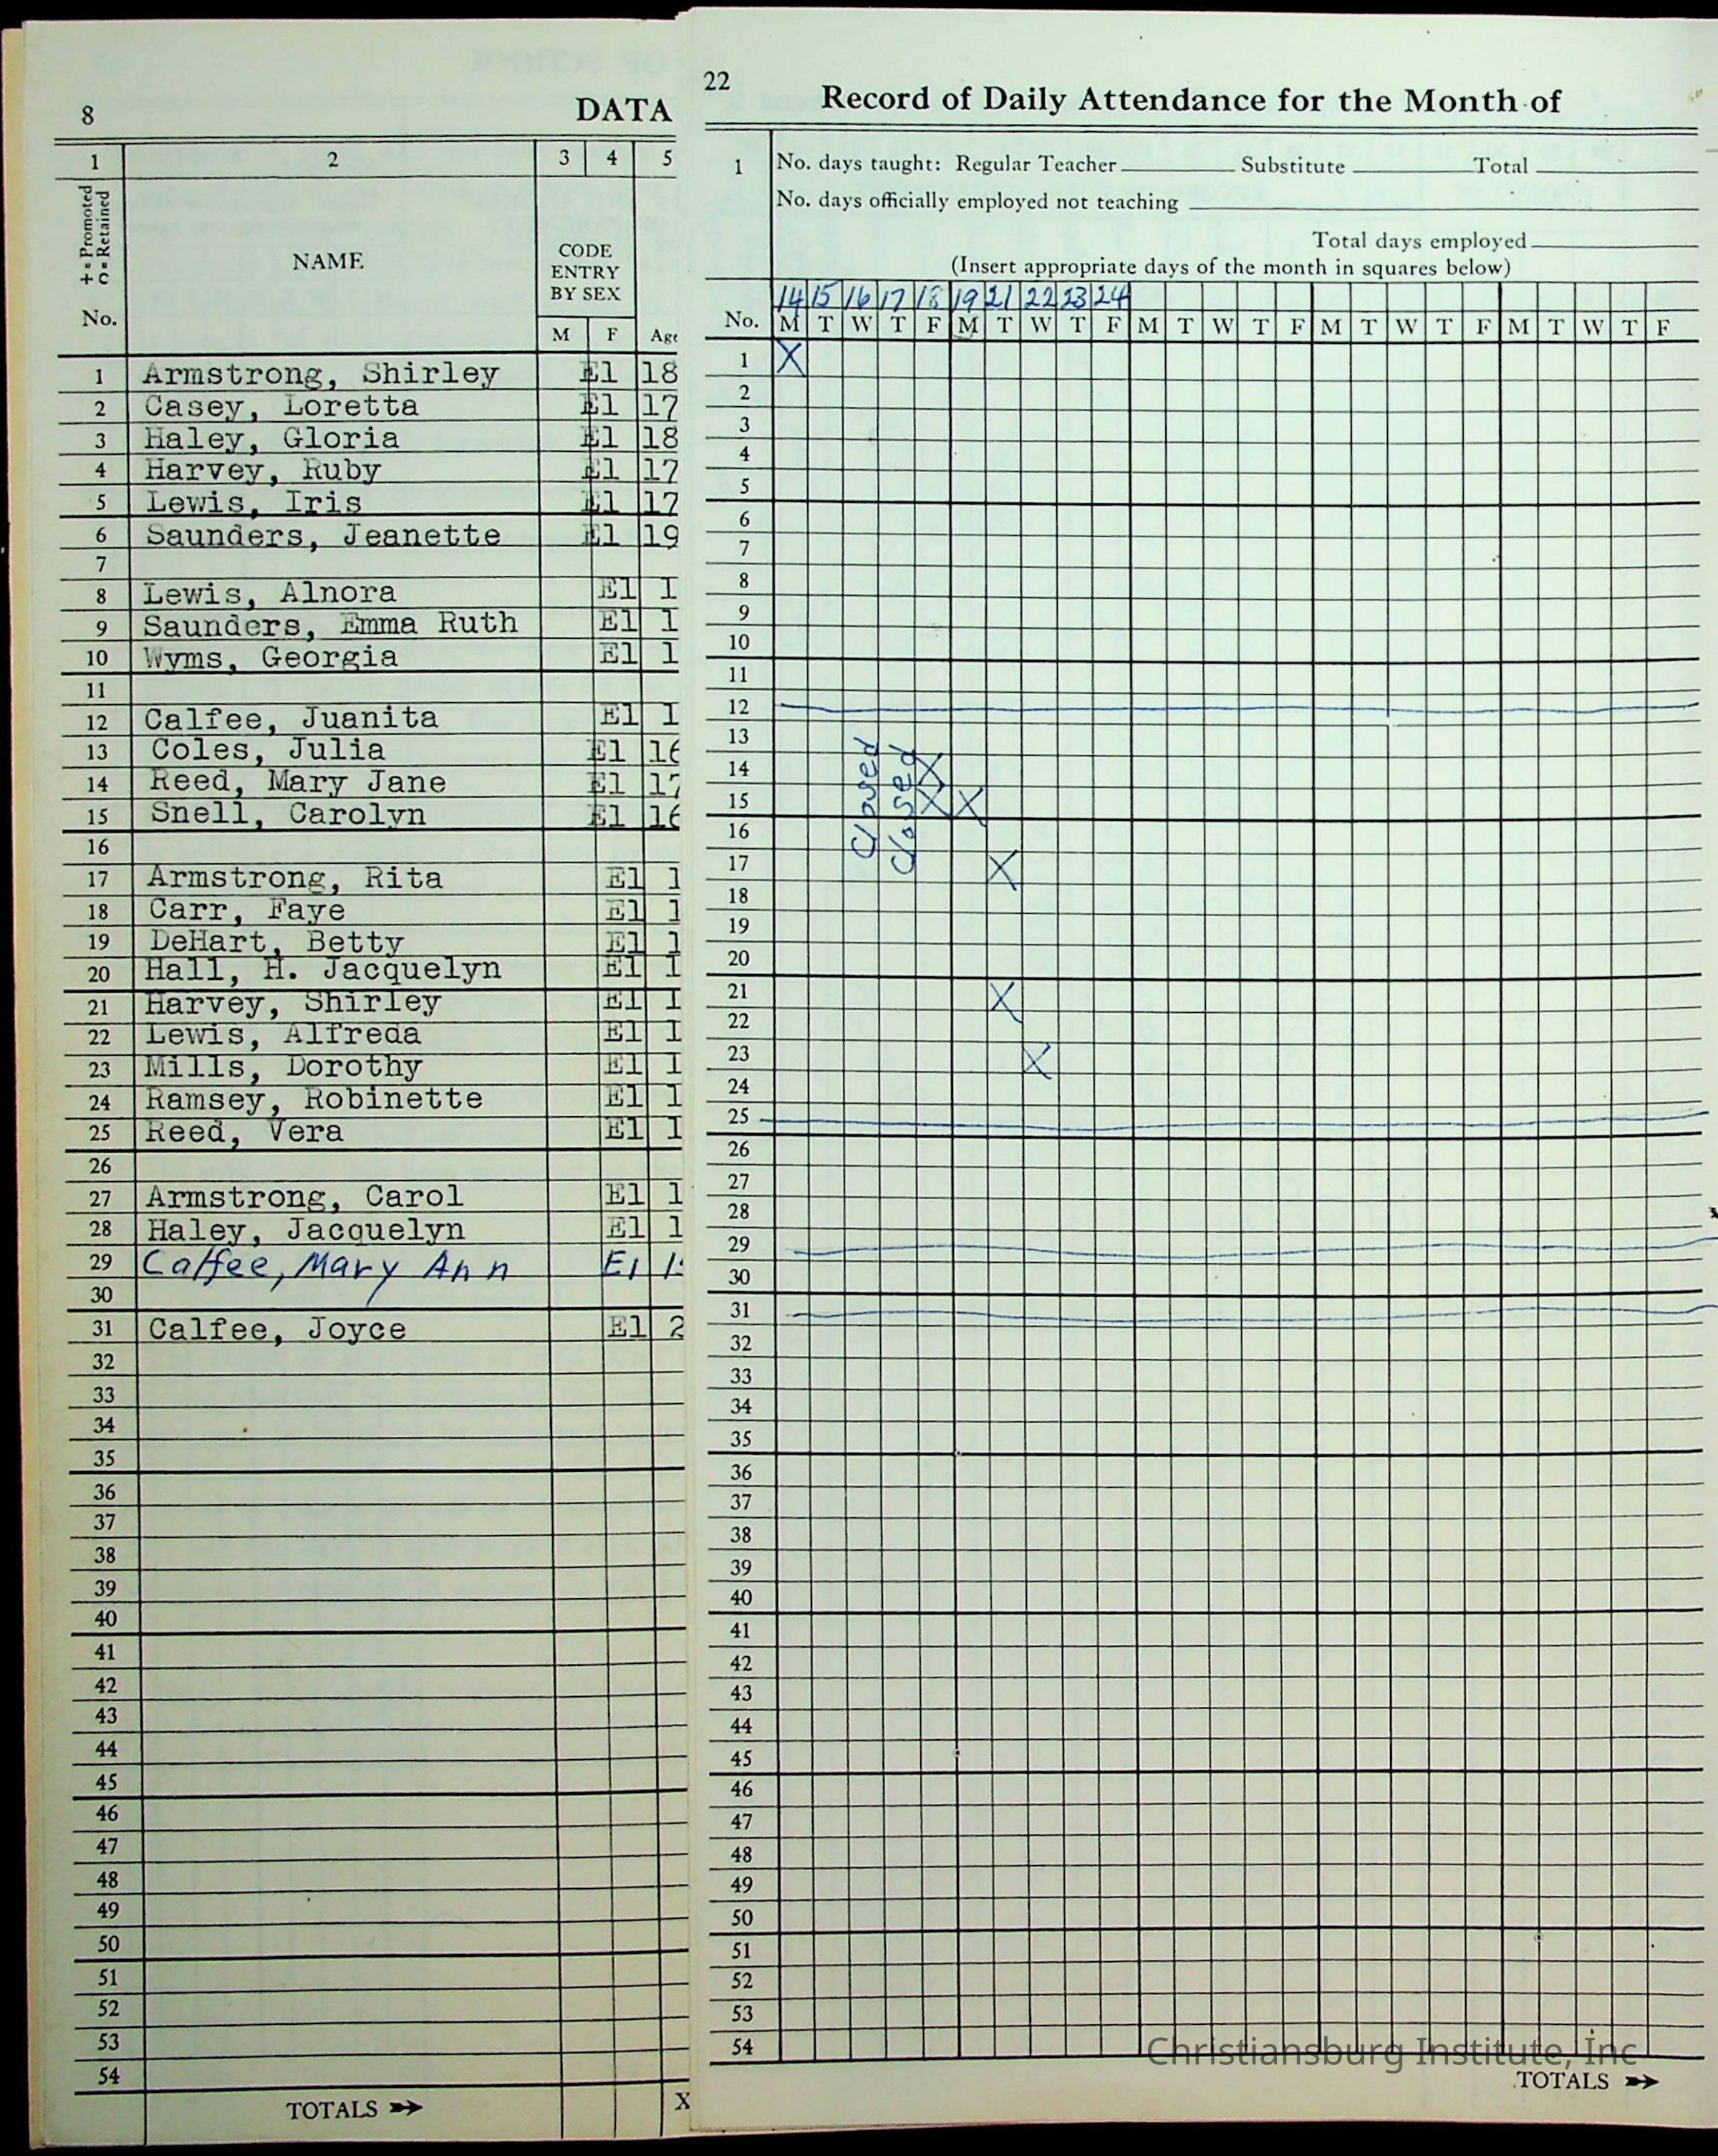 8
DATA
1 2 3 4 5
+ = Promoted
C = Retained
No.
NAME
CODE
ENTRY
BY SEX
M F Age
1 Armstrong, Shirley El 18
2 Casey, Loretta El 17
3 Haley, Gloria El 18
4 Harvey, Ruby El 17
5 Lewis, Iris El 17
6 Saunders, Jeanette El 19
7
8 Lewis, Alnora El 1
9 Saunders, Emma Ruth El 1
10 Wyms, Georgia El 1
11
12 Calfee, Juanita El 1
13 Coles, Julia El 16
14 Reed, Mary Jane El 17
15 Snell, Carolyn El 16
16
17 Armstrong, Rita El 1
18 Carr, Faye El 1
19 DeHart, Betty El 1
20 Hall, H. Jacquelyn El 1
21 Harvey, Shirley El 1
22 Lewis, Alfreda El 1
23 Mills, Dorothy El 1
24 Ramsey, Robinette El 1
25 Reed, Vera El 1
26
27 Armstrong, Carol El 1
28 Haley, Jacquelyn El 1
29 Calfee, Mary Ann El 1
30
31 Calfee, Joyce El 2
32
33
34
35
36
37
38
39
40
41
42
43
44
45
46
47
48
49
50
51
52
53
54
TOTALS X
22
Record of Daily Attendance for the Month of
1 No. days taught: Regular Teacher Substitute Total
No. days officially employed not teaching
Total days employed
(Insert appropriate days of the month in squares below)
14 15 16 17 18 19 21 22 23 24
No. M T W T F M T W T F M T W T F M T W T F M T W T F
1 X
2
3
4
5
6
7
8
9
10
11
12
13
Closed
Closed
14 X
15 X X
16
17 X
18
19
20
21 X
22
23 X
24
25
26
27
28
29
30
31
32
33
34
35
36
37
38
39
40
41
42
43
44
45
46
47
48
49
50
51
52
53
54
Christiansburg Institute, Inc
TOTALS